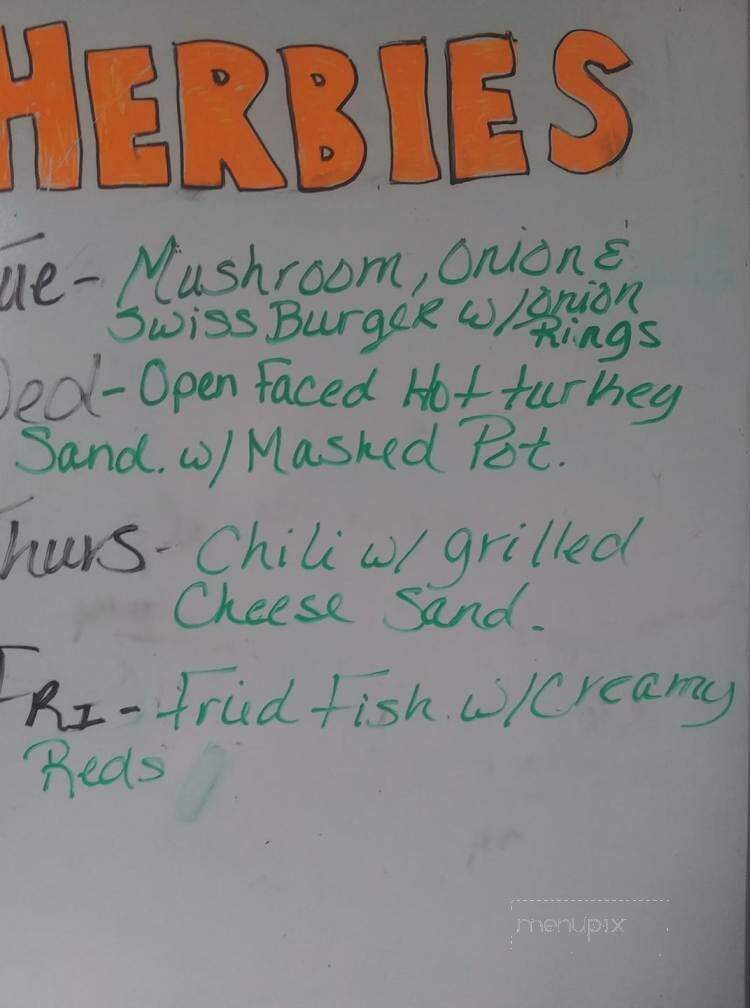 HERBIES
ue - Mushroom, Onion &
Swiss Burger w/ onion
Rings
ed - Open Faced Hot turkey
Sand. w/ Mashed Pot.
Thurs - Chili w/ grilled
Cheese Sand.
FRI - Fried Fish w/ Creamy
Reds
menupix